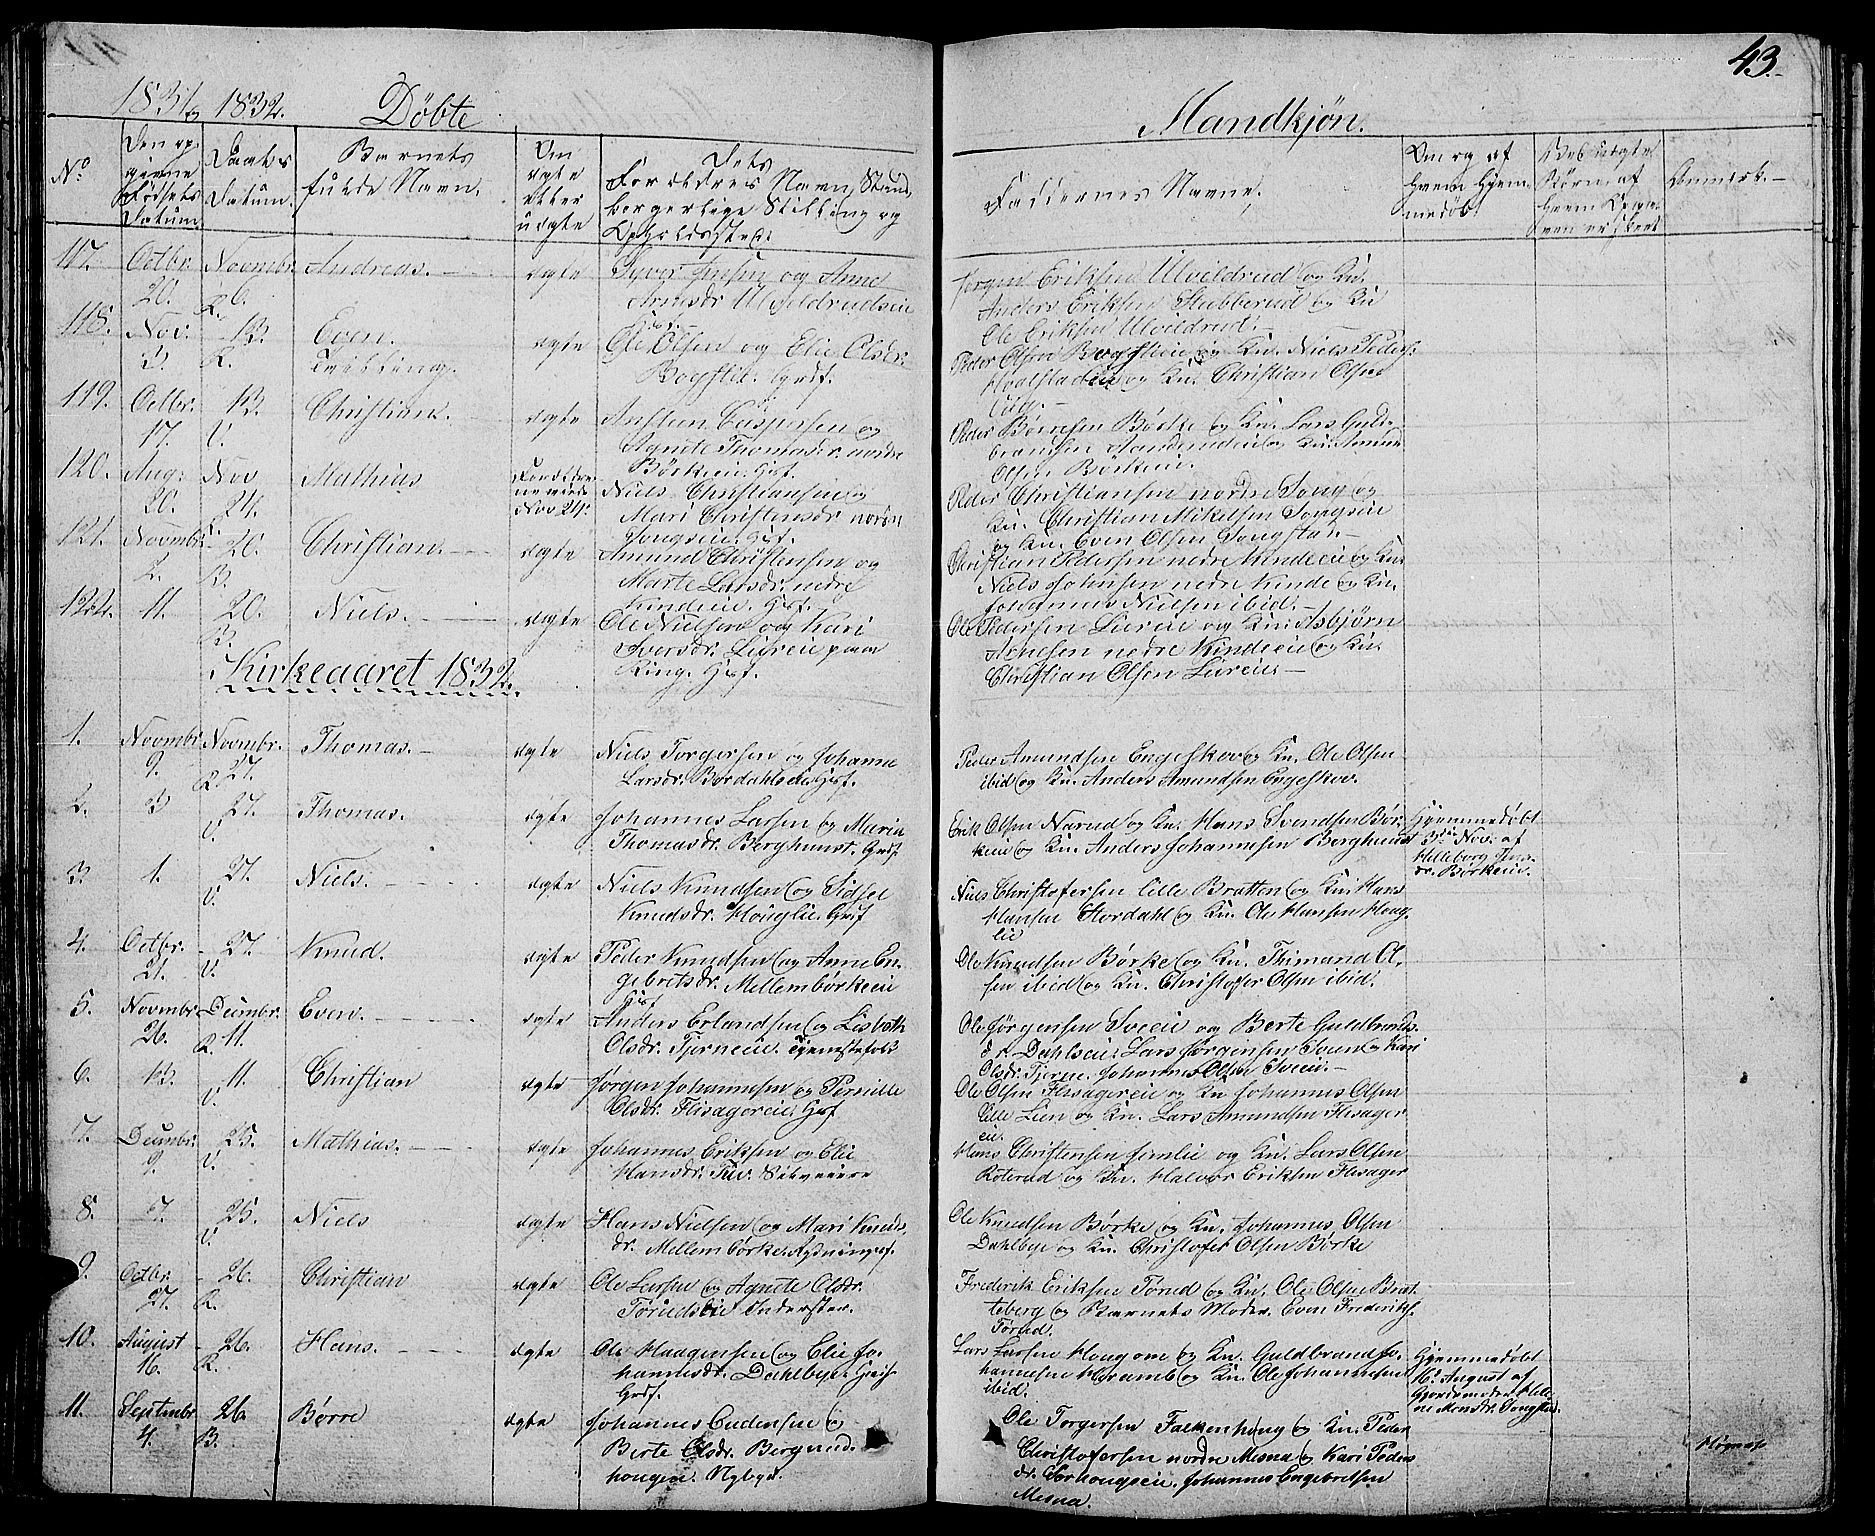 43.
1831 og 1832. Døbte
Mandkjøn.
No
Den op-
givne
Fødsels
Datum
Daabs
Datum.
Barnets
fulde Navn.
Om
ægte
eller
uægte
Dets
Forældres Navn, Stand,
borgerlige Stilling og
Opholdssted.
Faddernes Navne.
Om og af
hvem hjem-
medøbt
Anmærk.
117. Octbr. 20. Novmbr. 6. R. Andreas. ægte
Syver Jensen og Anne
Arnesdr. Ulvildrudseie
Husf.
Jørgen Eriksen Ulvildrud og Kn.
Anders Eriksen Stubberud og Kn
Ole Eriksen Ulvildrud.
118. Nov. 13. R. Even. Tvilling. ægte
Ole Olsen og Elie Olsdr.
Bogstie. Grdf.
Peder Olsen Bogstie og Kn. Niels Peders.
og Kn. Christian Olsen
Lie.
119. Octbr. 17. 13. V. Christian. ægte
Casparsen og
Agnete Thomasdr. nordre
Børkeeie. Husf.
Peder Børresen Børke og Kn. Lars Guld-
bransen og Kn.
Olsen Børkeeie.
120. Aug: 20. Nov 24. Mathias
Forældre-
ne viede
Nov 24.
Niels Christiansen og
Mari Christensdr nordre
Songseie. Husf.
Peder Christiansen nordre Song og
Kn. Christian Mikelsen Songseie
og Kn. Even Olsen Songstad.
121. Novmbr. 2. 20. B. Christian. ægte
Amund Christensen og
Marte Larsdr. nedre
Kindeeie. Husf.
Christian Pedersen nedre Kindeeie og Kn.
Niels Johnsen nedre Kinde og Kn.
Johannes Nielsen ibid.
122. 11. 20. B. Niels. ægte
Ole Nielsen og Kari
Iversdr. Lureie paa
Ring. Husf.
Ole Pedersen Lureie og Kn. Asbjørn
Arnesen nedre Kindeeie og Kn.
Christian Olsen Lureie
Kirkeaaret 1832.
1. Novmbr. 9. Novmbr. 27. R. Thomas. ægte
Niels Torgersen og Johanne
Larsdr. Bordahlseie. Husf.
Peder Amundsen Engeskov og Kn. Ole Olsen
ibid og Kn. Anders Amundsen Engeskov.
2. 3 27. V. Thomas. ægte
Johannes Larsen og Marie
Thomasdr. Berghuust. Grdf.
Erik Olsen Narud og Kn. Hans Svendsen Bør-
keeie og Kn. Anders Johannesen Berghuust
Hjemmedøbt
3die Nov. af
Helleborg Jens-
dr. Børkeeie.
3. 1. 27. V. Niels. ægte
Niels Knudsen og Sidsel
Knudsdr. Houglie. Grdf
Niels Christofersen lille Bratten og Kn. Hans
Hansen Stordahl og Kn. Ole Hansen Houg-
lie
4. Octbr. 21. 27. V. Knud. ægte
Peder Knudsen og Anne En-
gebretsdr. Mellembørkeeie
Husf
Ole Knudsen Børke og Kn. Thimand Ol-
sen ibid og Kn. Christofer Olsen ibid.
5. Novmbr. 26. Decmbr. 11. R. Even. ægte
Anders Erlandsen og Lisbeth
Olsdr. Tjerneie. Tjenestefolk
Ole Jørgensen Sveeie og Berte Guldbrands-
dr. Dahlseie, Lars Jørgensen og Kari
Olsdr. Tjerneie. Johannes Olsen Sveeie.
6. 13. 11. V. Christian ægte
Jørgen Johannesen og Pernille
Olsdr. Flisagereie. Husf
Ole Olsen Flisagereie og Kn Johannes Olsen
Lille Lien og Kn. Lars Amundsen Flisager
eie.
7. Decmbr. 9. 25. V. Mathias. ægte
Johannes Eriksen og Elie
Hansdr. Tuv. Selveiere
Hans Christensen Jemlie og Kn. Lars Olsen
Roterud og Kn. Halvor Eriksen Flisager
8. 7. 25. V. Niels ægte
Hans Nielsen og Mari Knuds-
dr. Mellembørke. Rydningsf.
Ole Knudsen Børke og Kn. Johannes Olsen
Dahlbye og Kn. Christofer Olsen Børke
9. Octbr. 27. 26. R. Christian ægte
Ole Larsen og Agnete Olsdr.
Torudseie Inderster.
Frederik Eriksen Torud og Kn. Ole Olsen Brat-
teberg og Barnets Moder. Even Frederiks.
Torud.
10. August 16. 26. R. Hans. ægte
Ole Haagensen og Elie Jo-
hannesdr. Dahlbye.
Grdf.
Lars Larsen Hougom og Kn. Guldbrand Jo-
hannesen Kramb og Kn. Ole Johannesen
ibid.
Hjemmedøbt
16. August af
Gjordemoder Hele-
ne Monsdr. Songstad.
11. Septmbr 4. 26. B. Børre ægte
Johannes Endensen og
Berte Olsdr. Bergund-
hougen. Nybygr.
Ole Torgersen Falkenhoug og Kn. Peder
Christofersen nordre Mesna og Kari Peders-
dr. Sorhougseie. Johannes Engebretsen
Mesna.